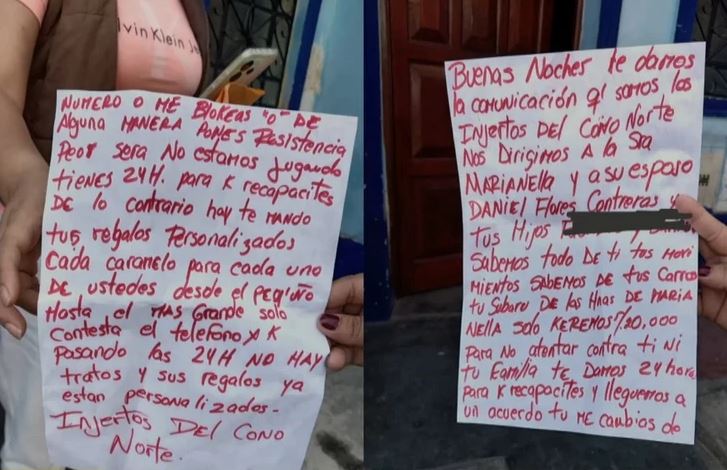 lvin Klein Je
NUMERO O ME BLOKEAS "O" DE
Alguna MANERA PONES Resistencia
Peor sera No estamos Jugando
tienes 24H. para K recapacites
DE lo contrario hoy te MANDO
tus regalos Personalizados
Cada caramelo para cada uno
DE ustedes desde el PEQIÑO
Hasta el MAS Grande solo
Contesta el telefono y K
Pasando las 24H NO HAY
tratos y sus regalos ya
estan personalizados-
Injertos DEL CONO
Norte.
Buenas Noches te damos
la comunicación q' somos los
Injertos DEL CONO Norte
Nos Dirigimos A la Sra
MARIANELLA y a su esposo
DANIEL Flores Contreras y
tus Hijos
Sabemos todo DE ti tos Movi
mientos SABEMOS DE tus Carros
tu Subaru DE las Hnas DE MARIA
NELLA Solo KEREMOS S/20,000
Para No atentar contra ti Ni
tu Familia te Damos 24 horas
para K recapacites y lleguemos a
un acuerdo tu ME cambias de